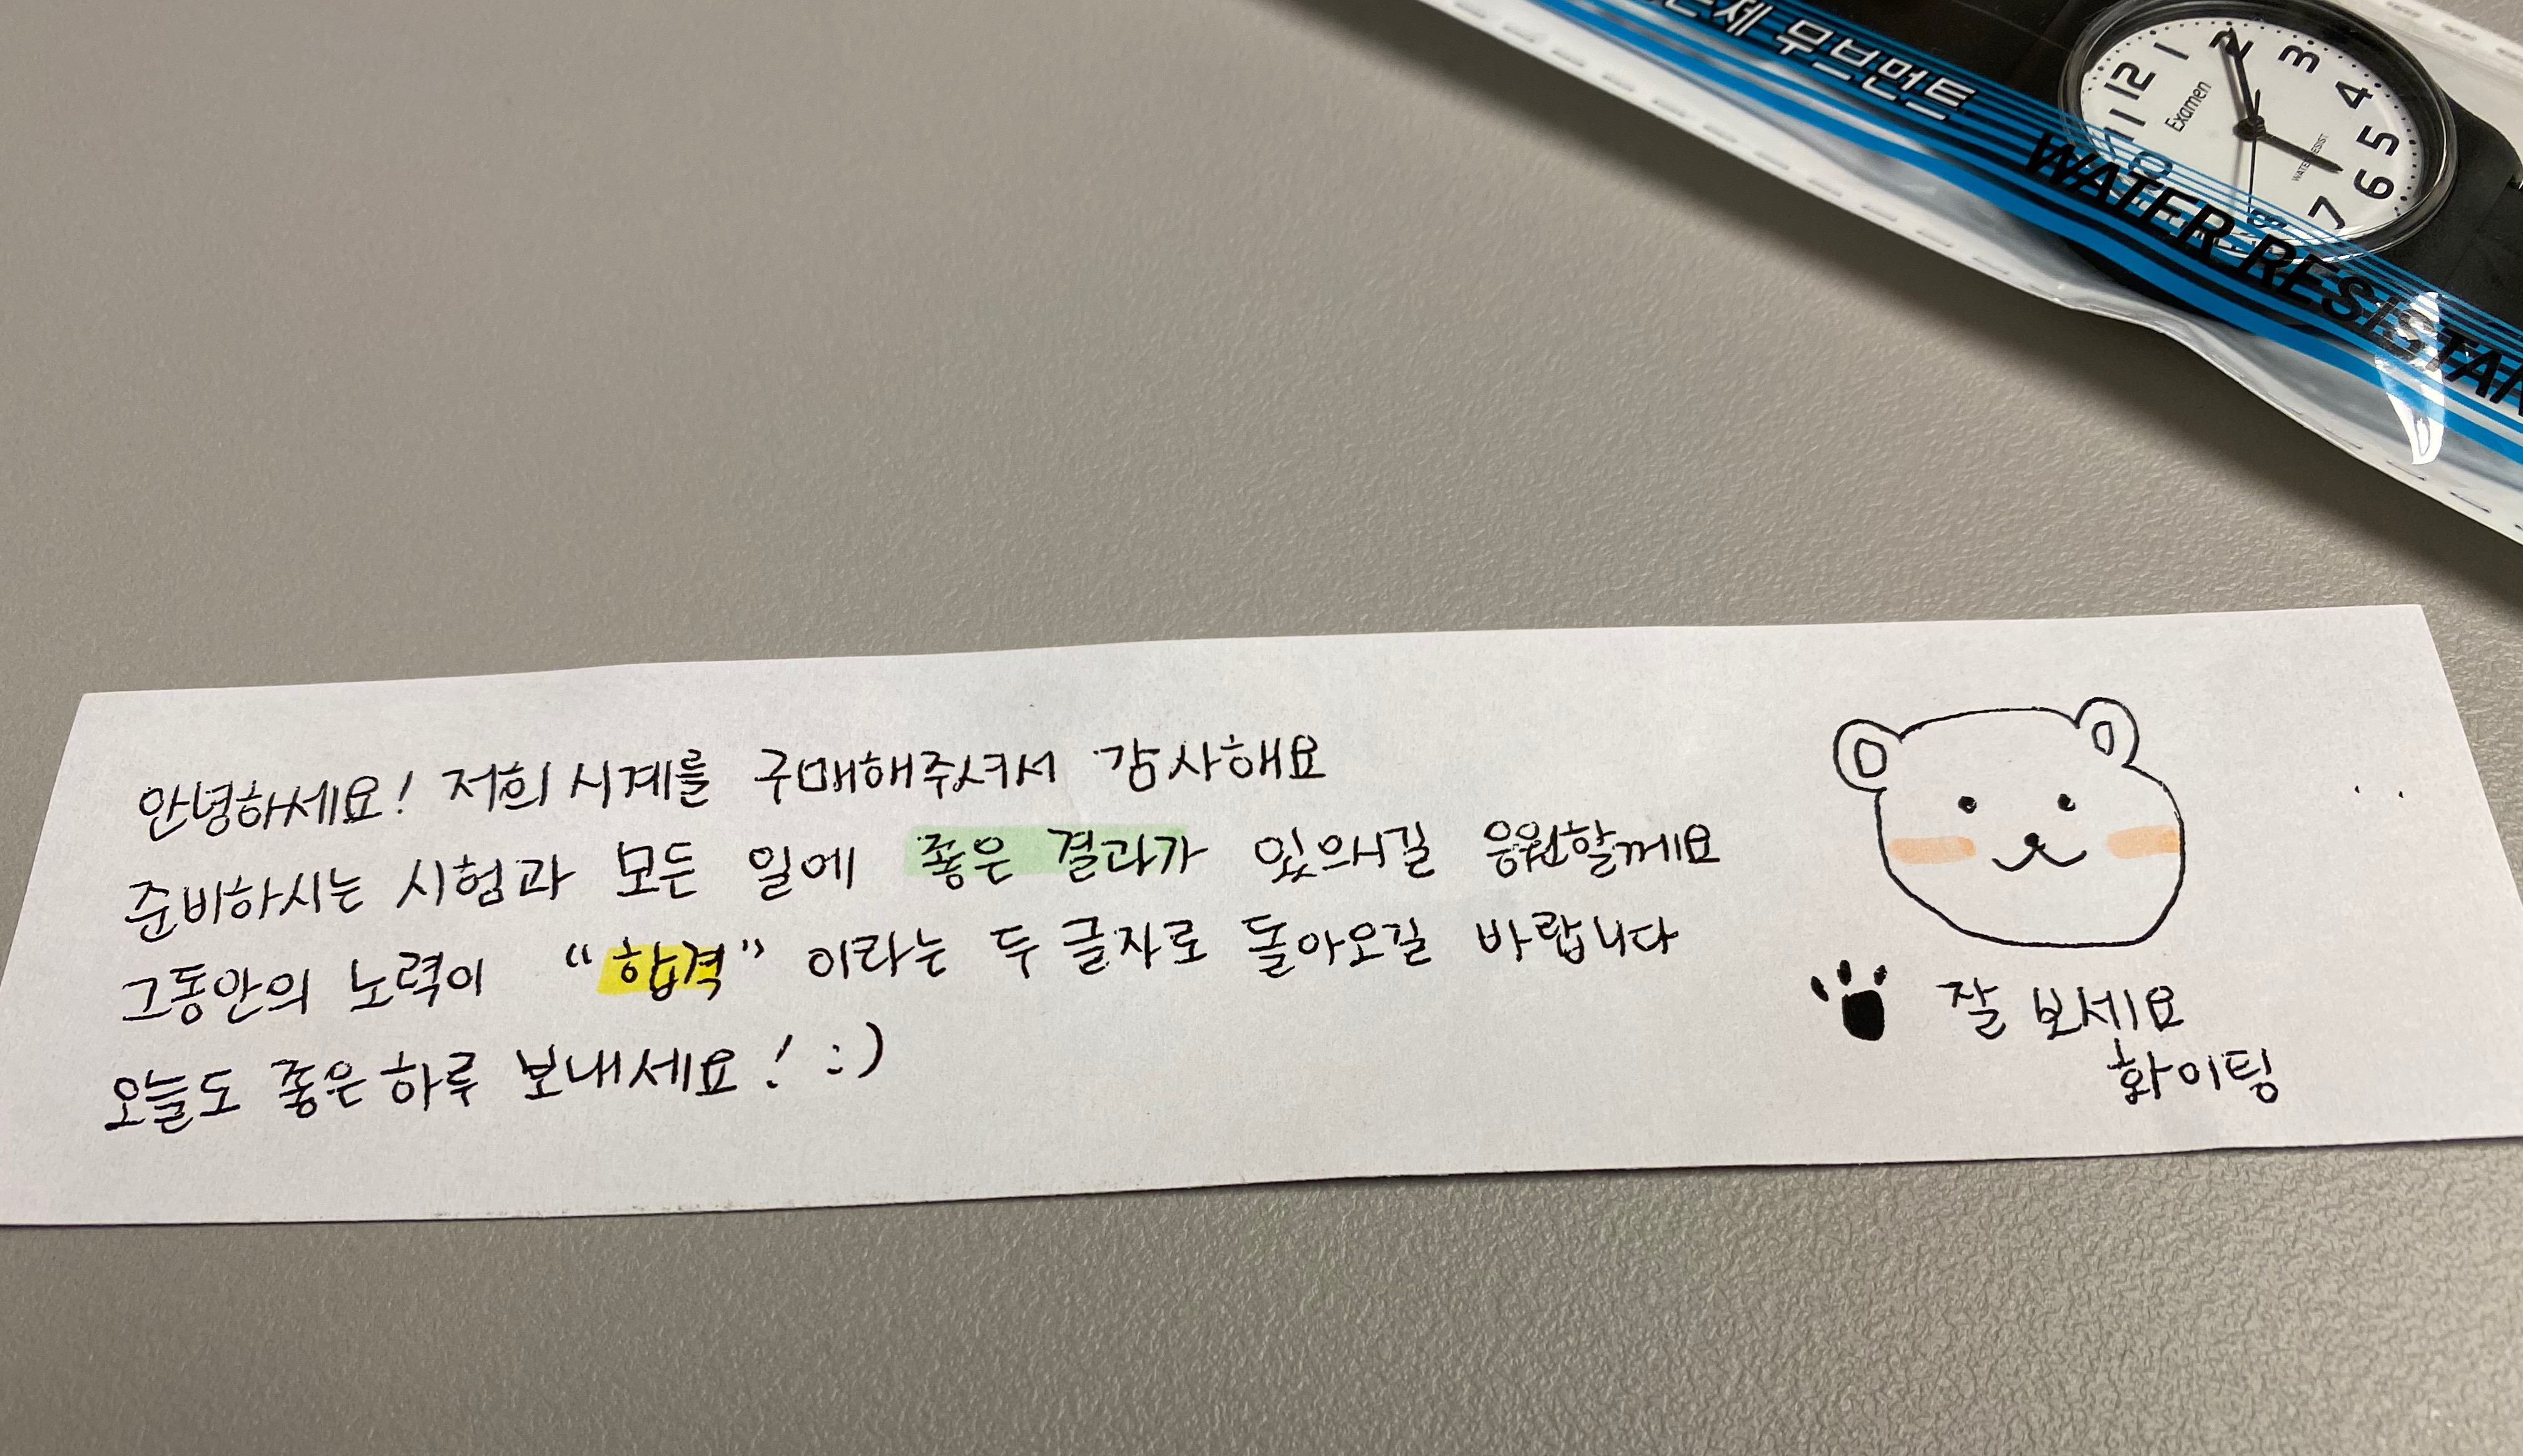 무브먼트
WATER RESISTAN
1
2
3
4
5
6
7
8
10
11
12
Examen
WATER RESIST
안녕하세요! 저희 시계를 구매해주셔서 감사해요
준비하시는 시험과 모든 일에 좋은 결과가 있으시길 응원할께요
그동안의 노력이 “합격” 이라는 두 글자로 돌아오길 바랍니다
오늘도 좋은 하루 보내세요! :)
잘 보세요
화이팅